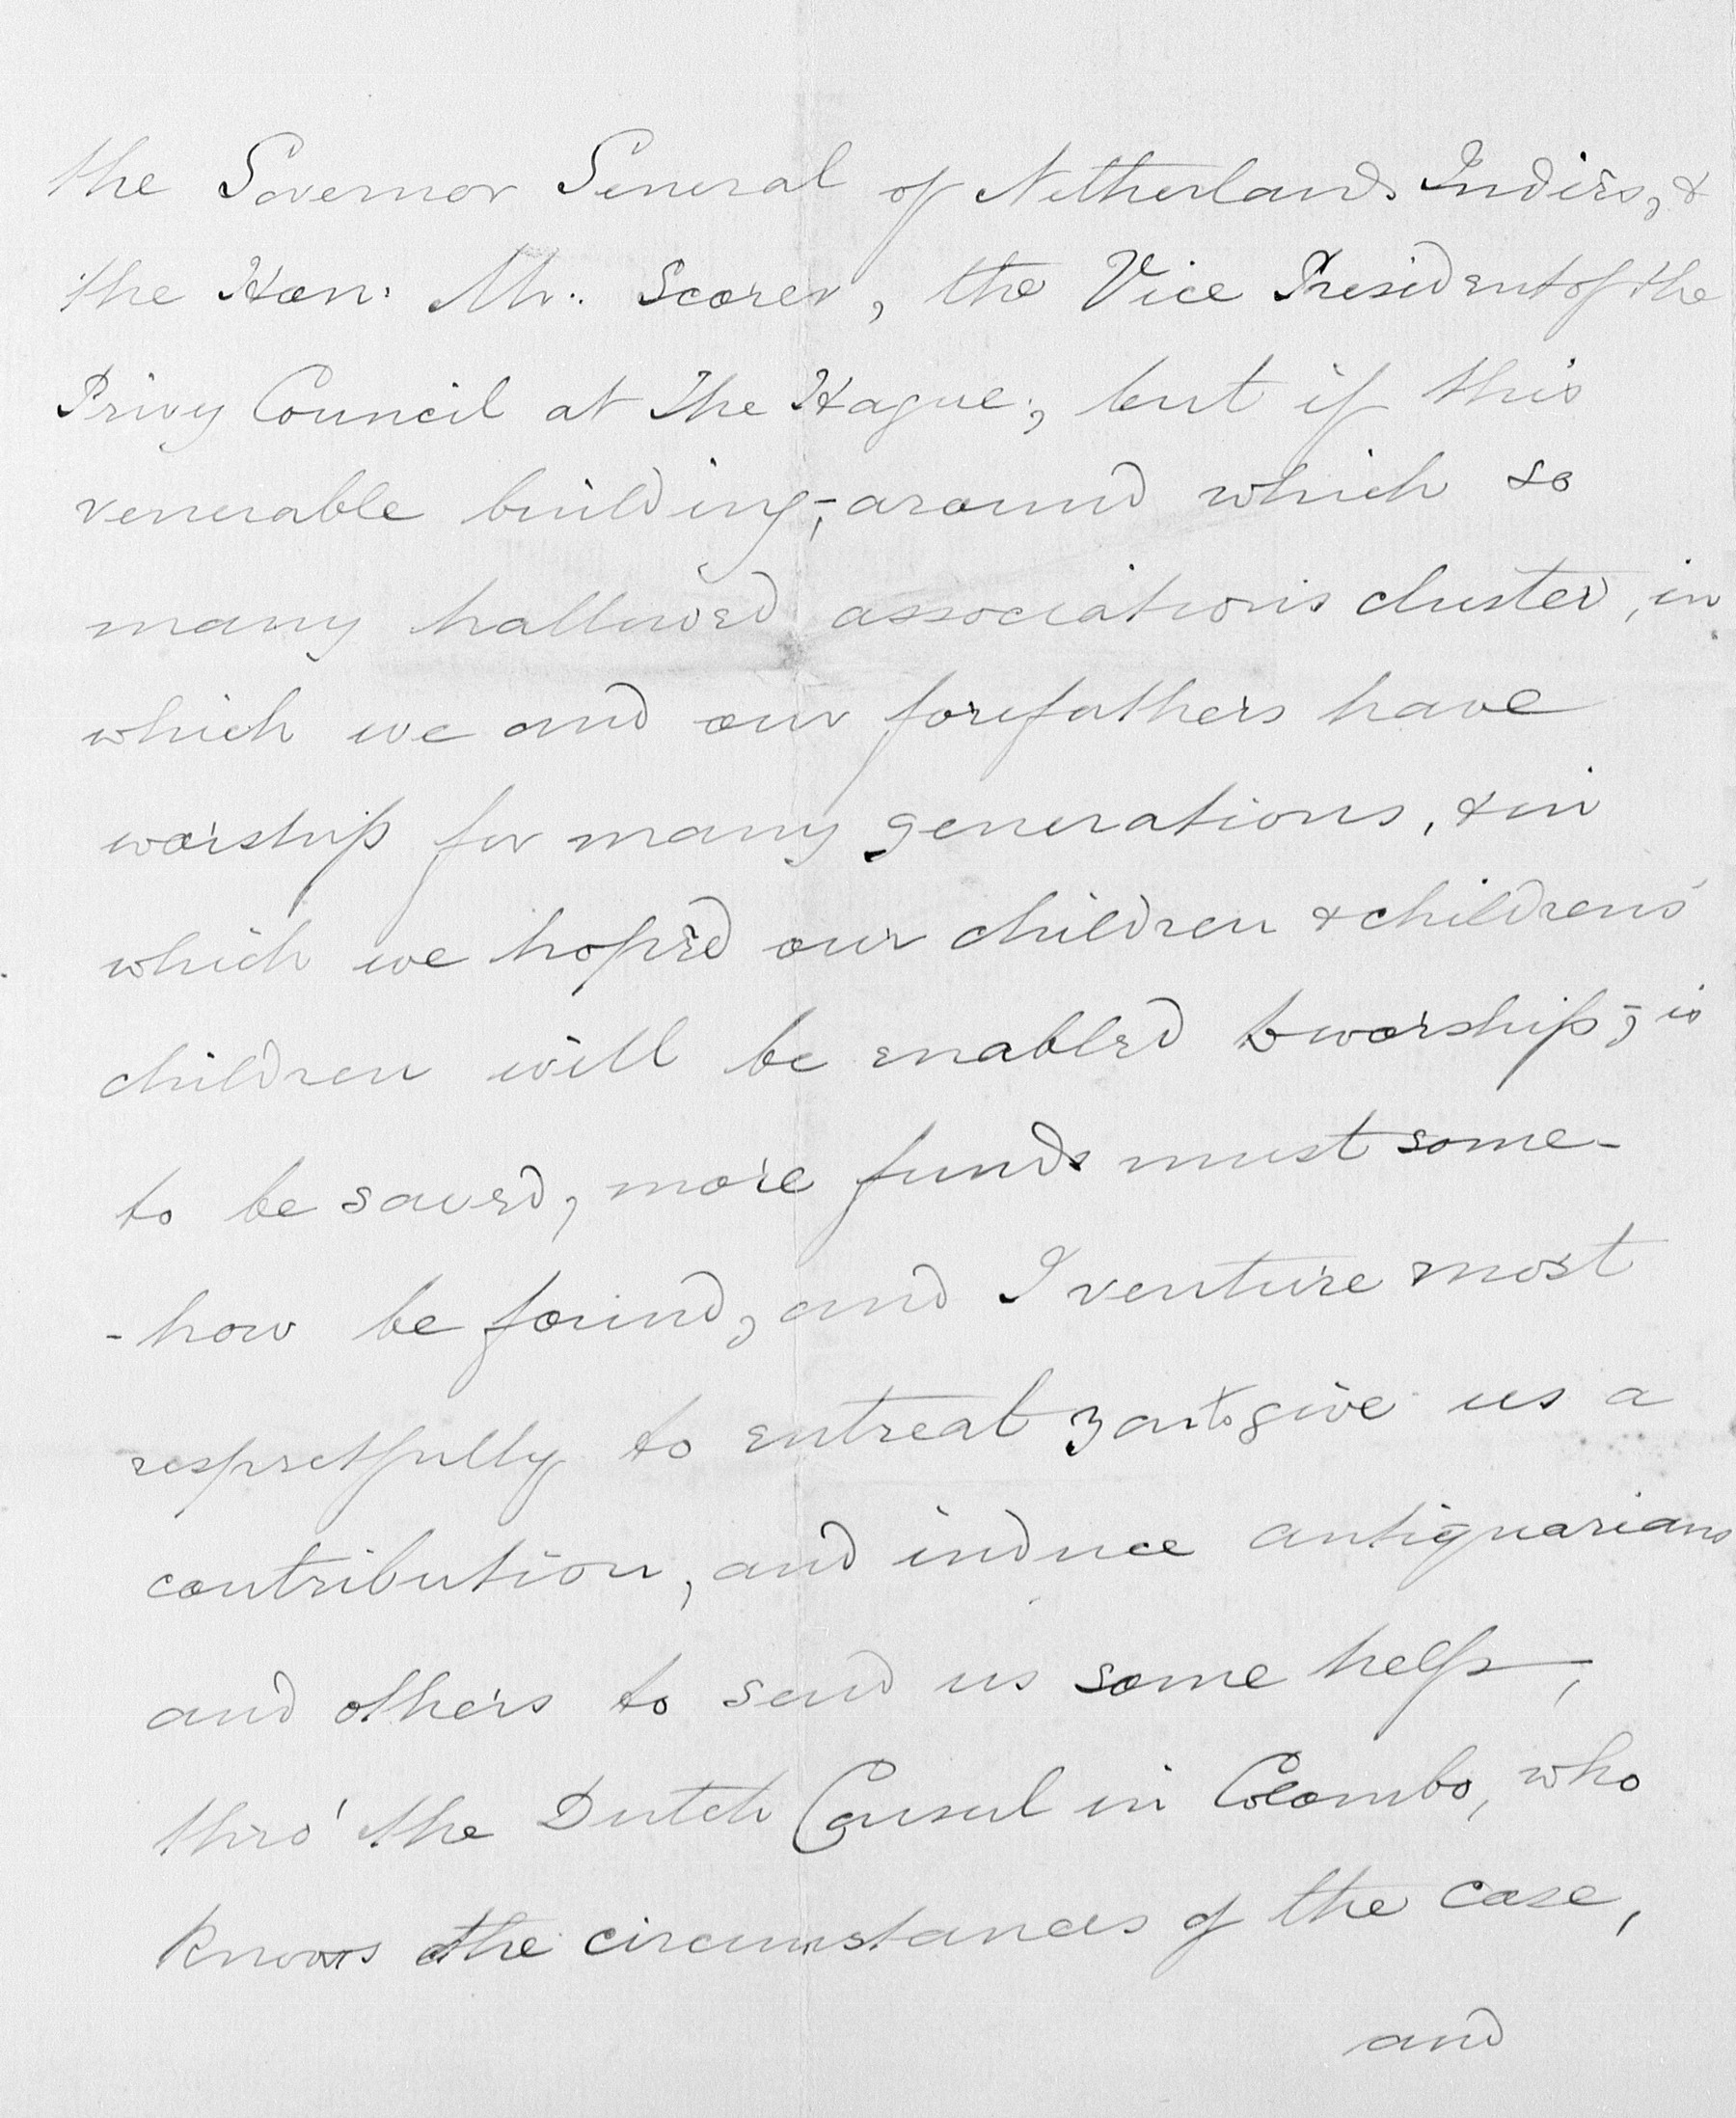 the Governor General of Netherlands Indies, &
the Hon: Mr. Scorer, the Vice President of the
Privy Council at The Hague; but if this
venerable building,- around which so
many hallowed associations cluster, in
which we and our forefathers have
worship for many generations, & in
which we hoped our children & childrens'
children will be enabled to worship,- is
to be saved, more funds must some-
-how be found, and I venture most
respectfully to entreat you to give us a
contribution, and induce antiquarians
and others to send us some help,
thro' the Dutch Consul in Colombo, who
knows the circumstances of the case,
and